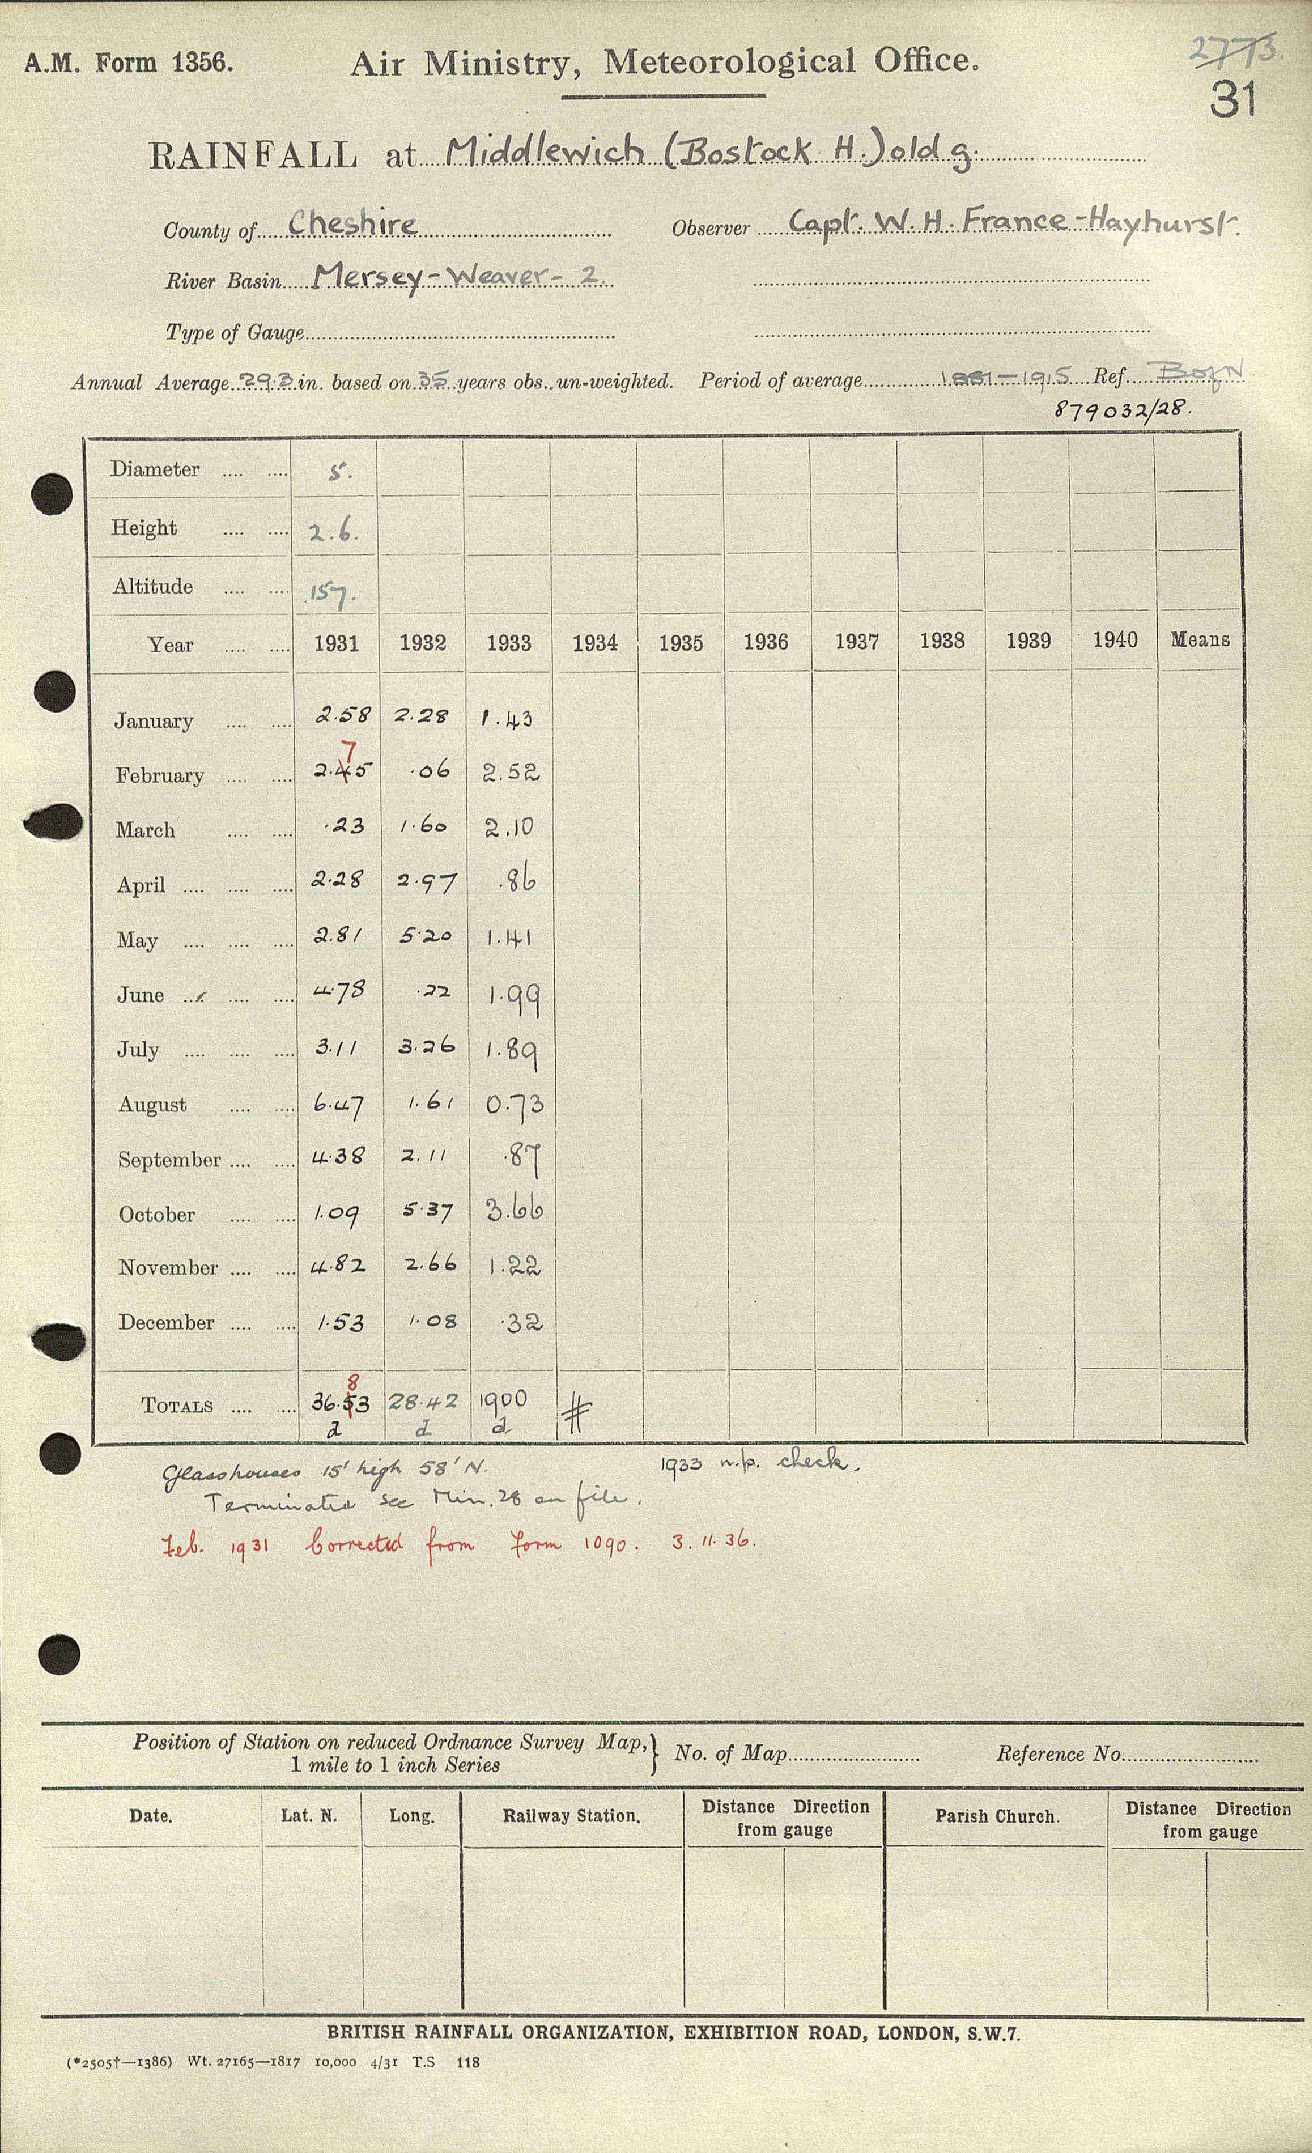 A.M. Form 1356.
Air Ministry, Meteorological Office.
2773.
31
RAINFALL at Middlewich (Bostock H.) old g.
County of Cheshire Observer Capt. W. H. France-Hayhurst.
River Basin Mersey-Weaver-2.
Type of Gauge
Annual Average 29.3 in. based on 35 years obs. un-weighted. Period of average 1881-1915 Ref.
879032/28.
Diameter 5.
Height 2.6.
Altitude 157.
Year 1931 1932 1933 1934 1935 1936 1937 1938 1939 1940 Means
January 2.58 2.28 1.43
7
February 2.45 .06 2.52
March .23 1.60 2.10
April 2.28 2.97 .86
May 2.81 5.20 1.41
June 4.78 .22 1.99
July 3.11 3.26 1.89
August 6.47 1.61 0.73
September 4.38 2.11 .87
October 1.09 5.37 3.66
November 4.82 2.66 1.22
December 1.53 1.08 .32
8
TOTALS 36.53 28.42 1900 #
d d d
Glasshouses 15' high 58' N. 1933 n.p. check.
Terminated see Min. 28 on file.
Feb. 1931 Corrected from Form 1090. 3.11.36.
Position of Station on reduced Ordnance Survey Map,
1 mile to 1 inch Series
} No. of Map Reference No.
Date. Lat. N. Long. Railway Station. Distance Direction from gauge Parish Church. Distance Direction from gauge
BRITISH RAINFALL ORGANIZATION, EXHIBITION ROAD, LONDON, S.W.7.
(*2505†—1386) Wt. 27165—1817 10,000 4/31 T.S 118